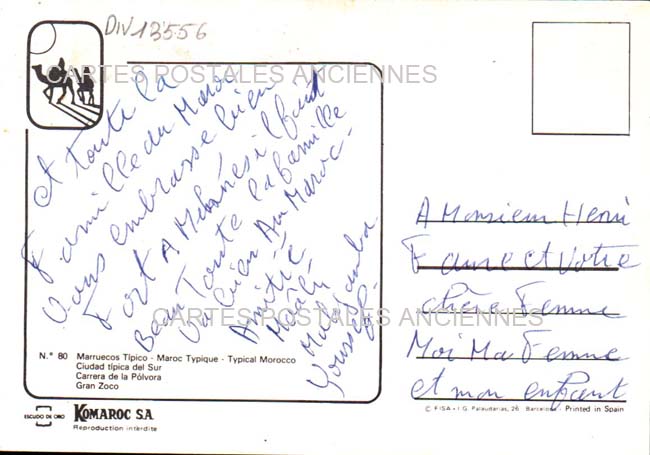 DIV 13556
CARTES POSTALES ANCIENNES
A Monsieur Henri
Faure et Votre
chère Femme
Moi Ma Femme
et mon enfant
et toute la
Famille du Maroc
Vous embrasse bien
Fort A il fait
Beau Toute la famille
Va bien Au Maroc-
Amitié
Youssef
CARTES POSTALES ANCIENNES
N.° 80 Marruecos Típico - Maroc Typique - Typical Morocco
Ciudad típica del Sur
Carrera de la Pólvora
Gran Zoco
ESCUDO DE ORO KOMAROC S.A.
Reproduction interdite
© FISA - I.G. Palaudarias, 26 - Barcelona - Printed in Spain